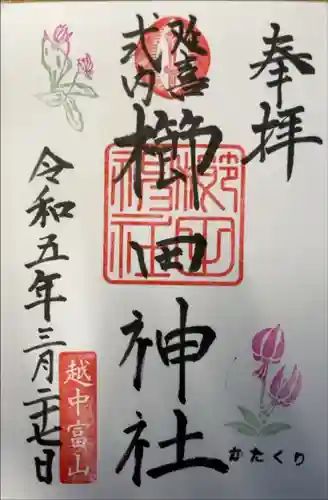 奉拝
延喜
式内
櫛田神社
櫛田神社
令和五年三月二十七日
越中富山
かたくり